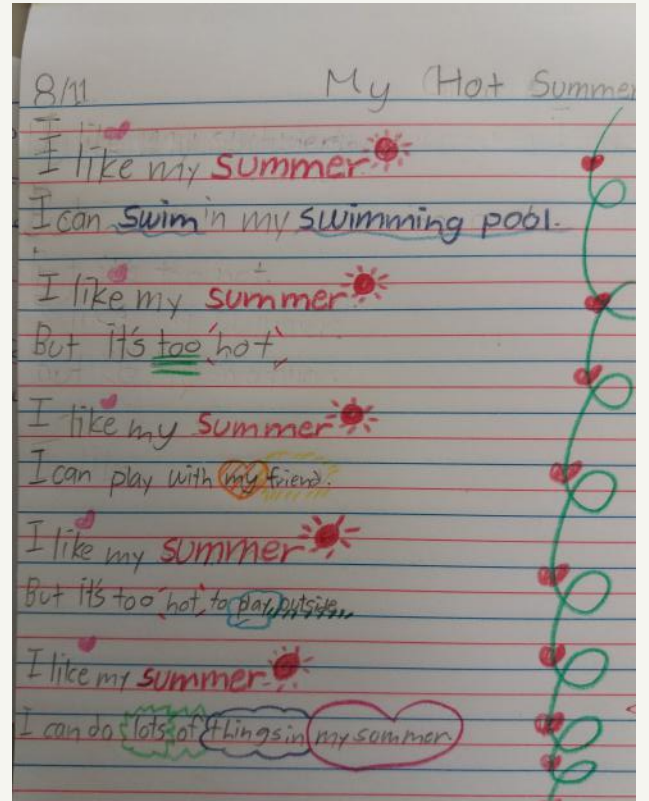 8/11 My Hot Summer
I like my summer
I can swim in my swimming pool.
I like my summer
But it's too hot
I like my summer
I can play with my friend.
I like my summer
But it's too hot to play outside
I like my summer
I can do lots of things in my summer